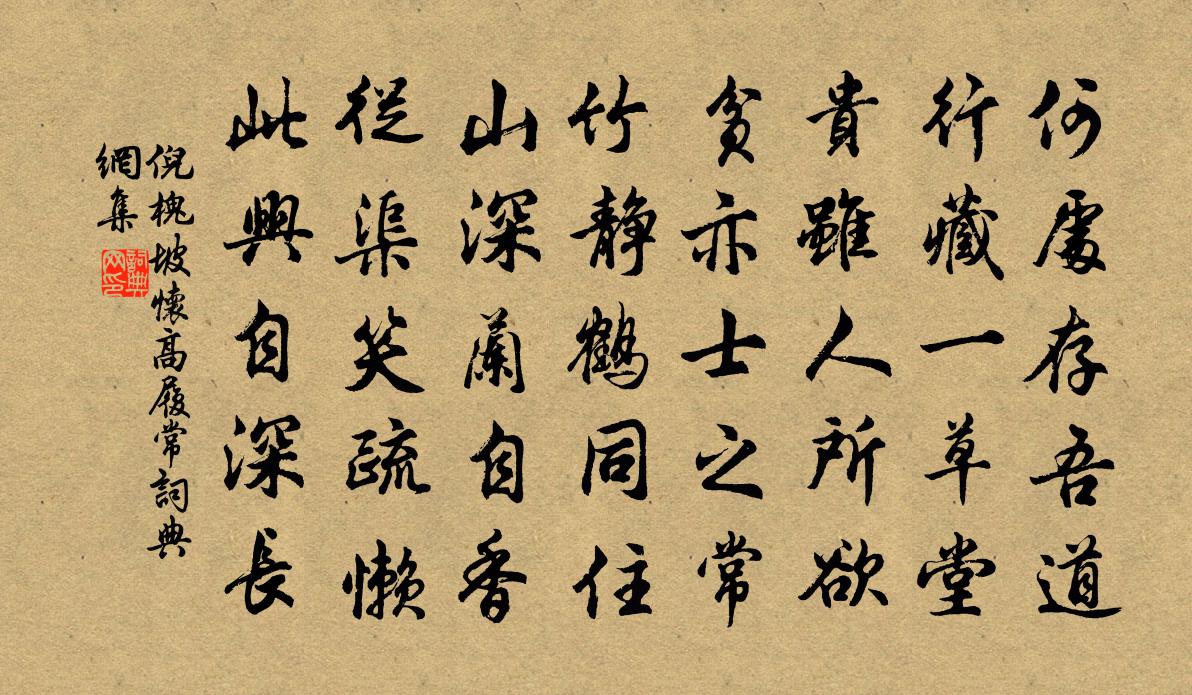 何處存吾道
行藏一草堂
貴雖人所欲
貧亦士之常
竹靜鶴同住
山深蘭自香
從渠笑疏懶
此興自深長
倪槐坡懷高履常詞典
網集
詞典
网印